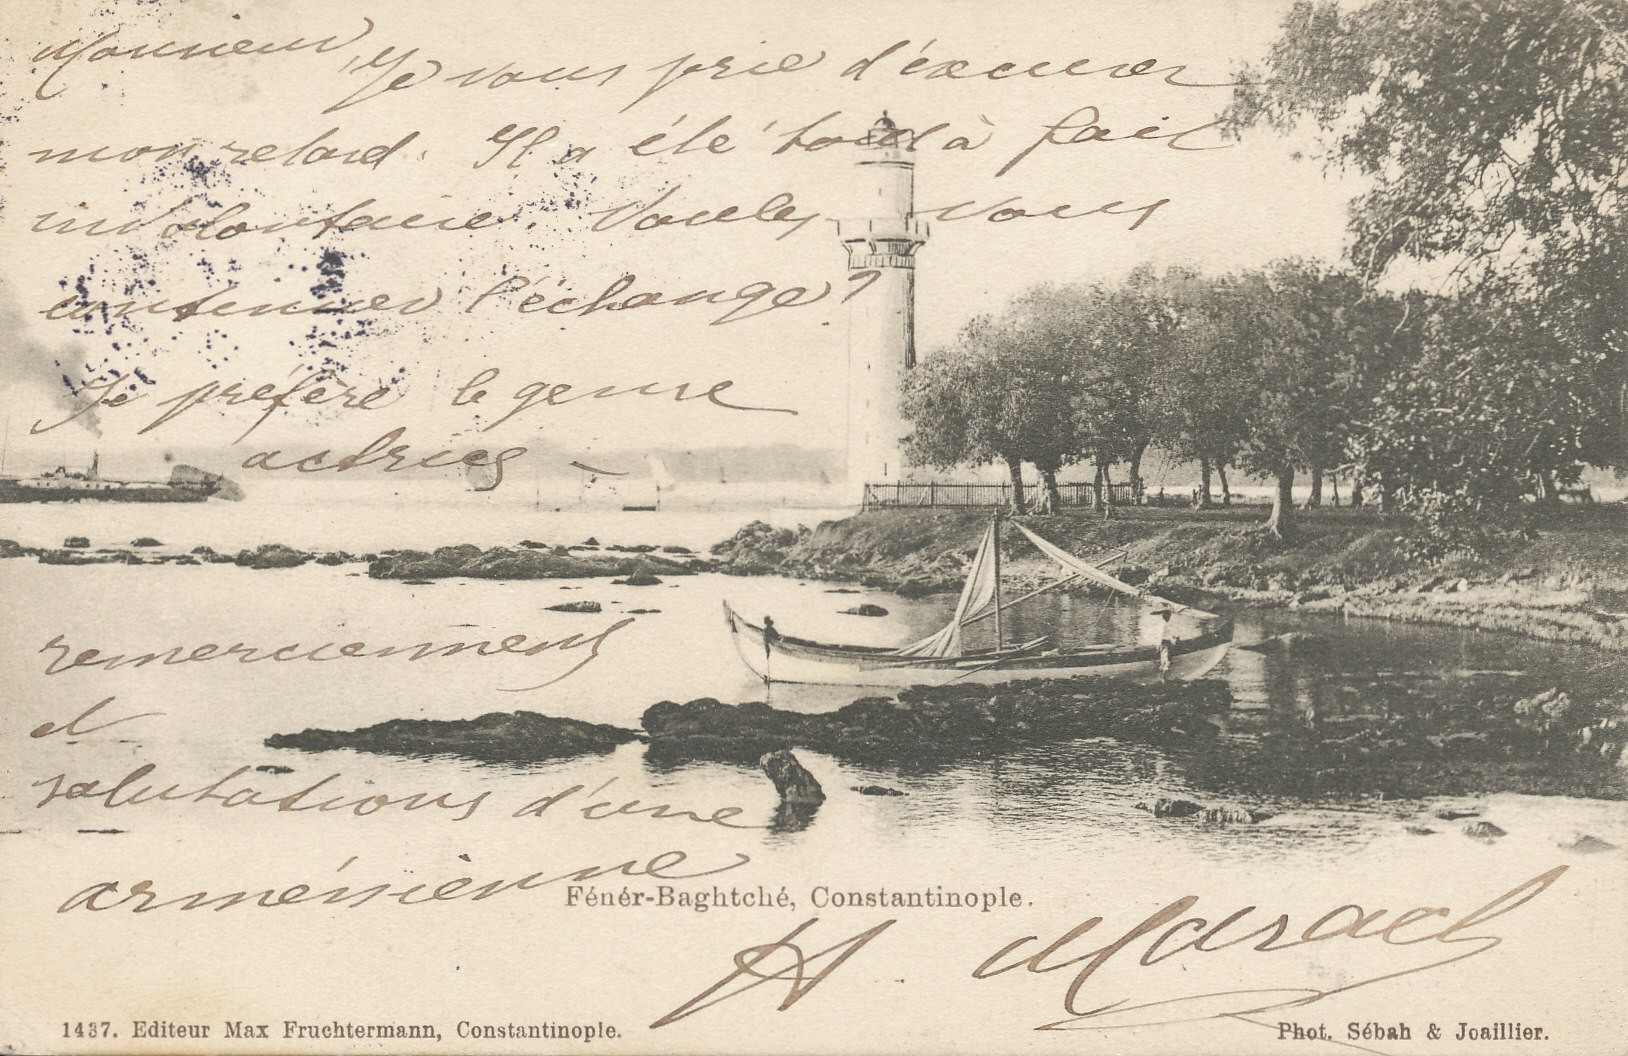 Monsieur, Je vous prie d'éxcuser
mon retard. Il a été tout à fait
involontaire. Voulez vous
continuer l'échange?
Je préfère le genre
actrices —
remerciements
et
salutations d'une
arménienne
Fénér-Baghtché, Constantinople.
A. Marach
1437. Editeur Max Fruchtermann, Constantinople.
Phot. Sébah & Joaillier.